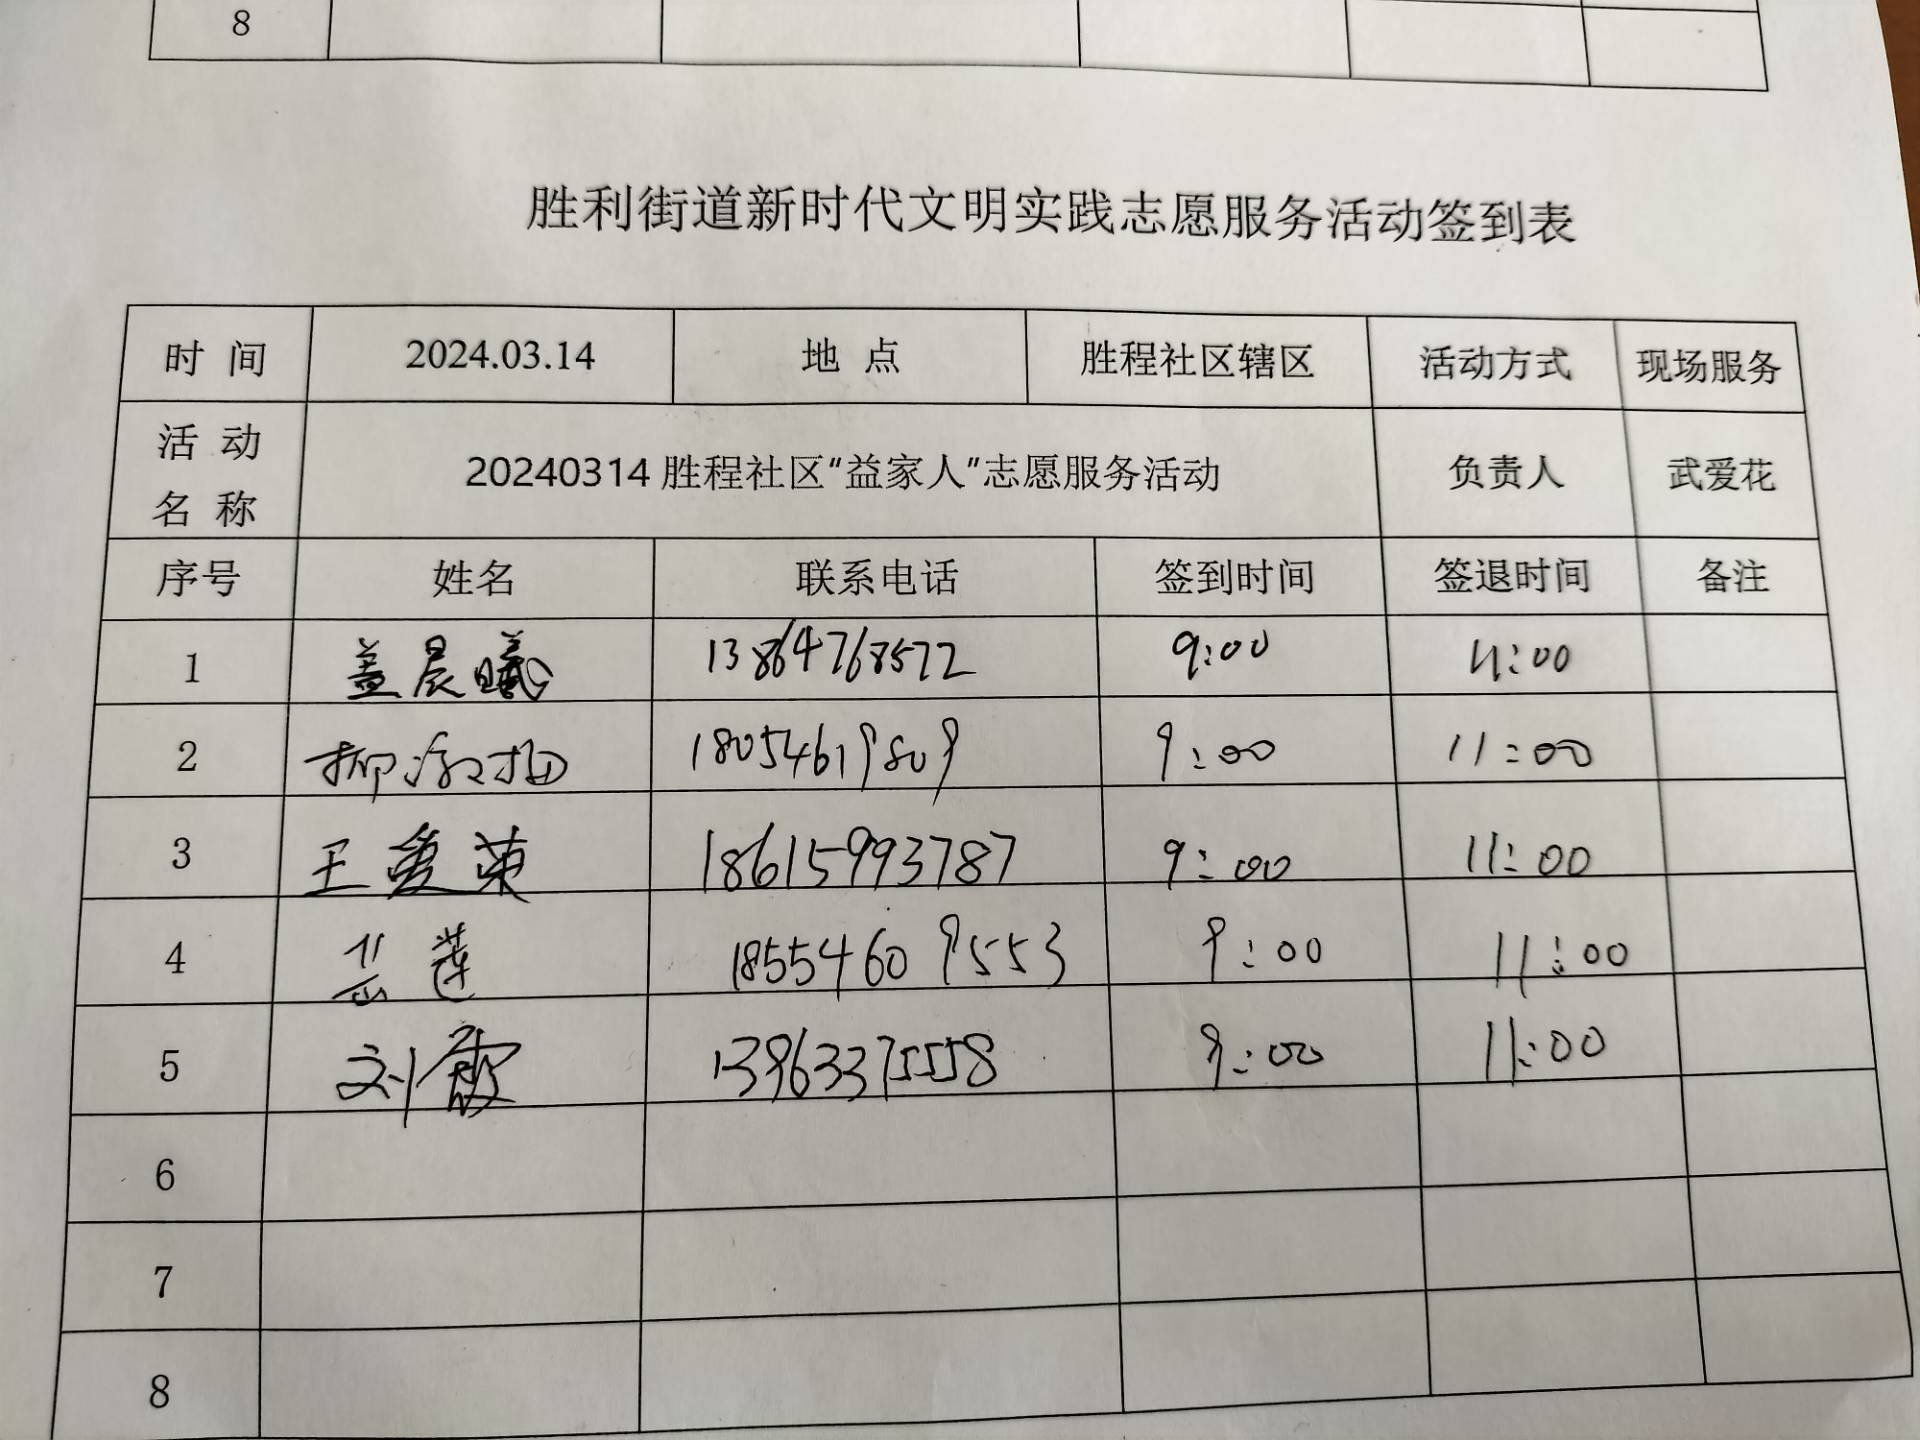 8
胜利街道新时代文明实践志愿服务活动签到表
时 间 2024.03.14 地 点 胜程社区辖区 活动方式 现场服务
活 动
名 称 20240314 胜程社区“益家人”志愿服务活动 负责人 武爱花
序号 姓名 联系电话 签到时间 签退时间 备注
1 盖晨曦 13864768572 9:00 11:00
2 柳 18054619809 9:00 11:00
3 王爱荣 18615993787 9:00 11:00
4 莲 18554609553 9:00 11:00
5 刘霞 13963375558 9:00 11:00
6
7
8